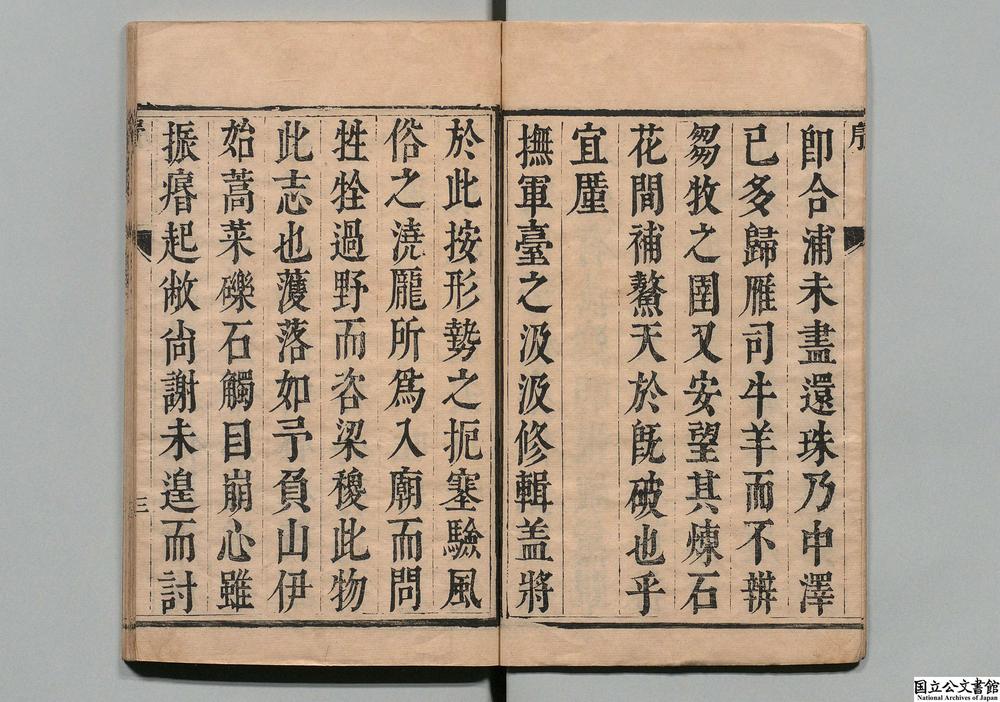 序
卽合浦未盡還珠乃中澤
已多歸雁司牛羊而不辨
芻牧之圉又安望其煉石
花間補鰲天於旣破也乎
宜厪
撫軍臺之汲汲修輯盖將
於此按形勢之扼塞驗風
俗之澆龐所爲入廟而問
牲牷過野而咨梁稷此物
此志也蒦落如予負山伊
始蒿萊礫石觸目崩心雖
振瘠起敝尙謝未遑而討
三
国立公文書館
National Archives of Japan